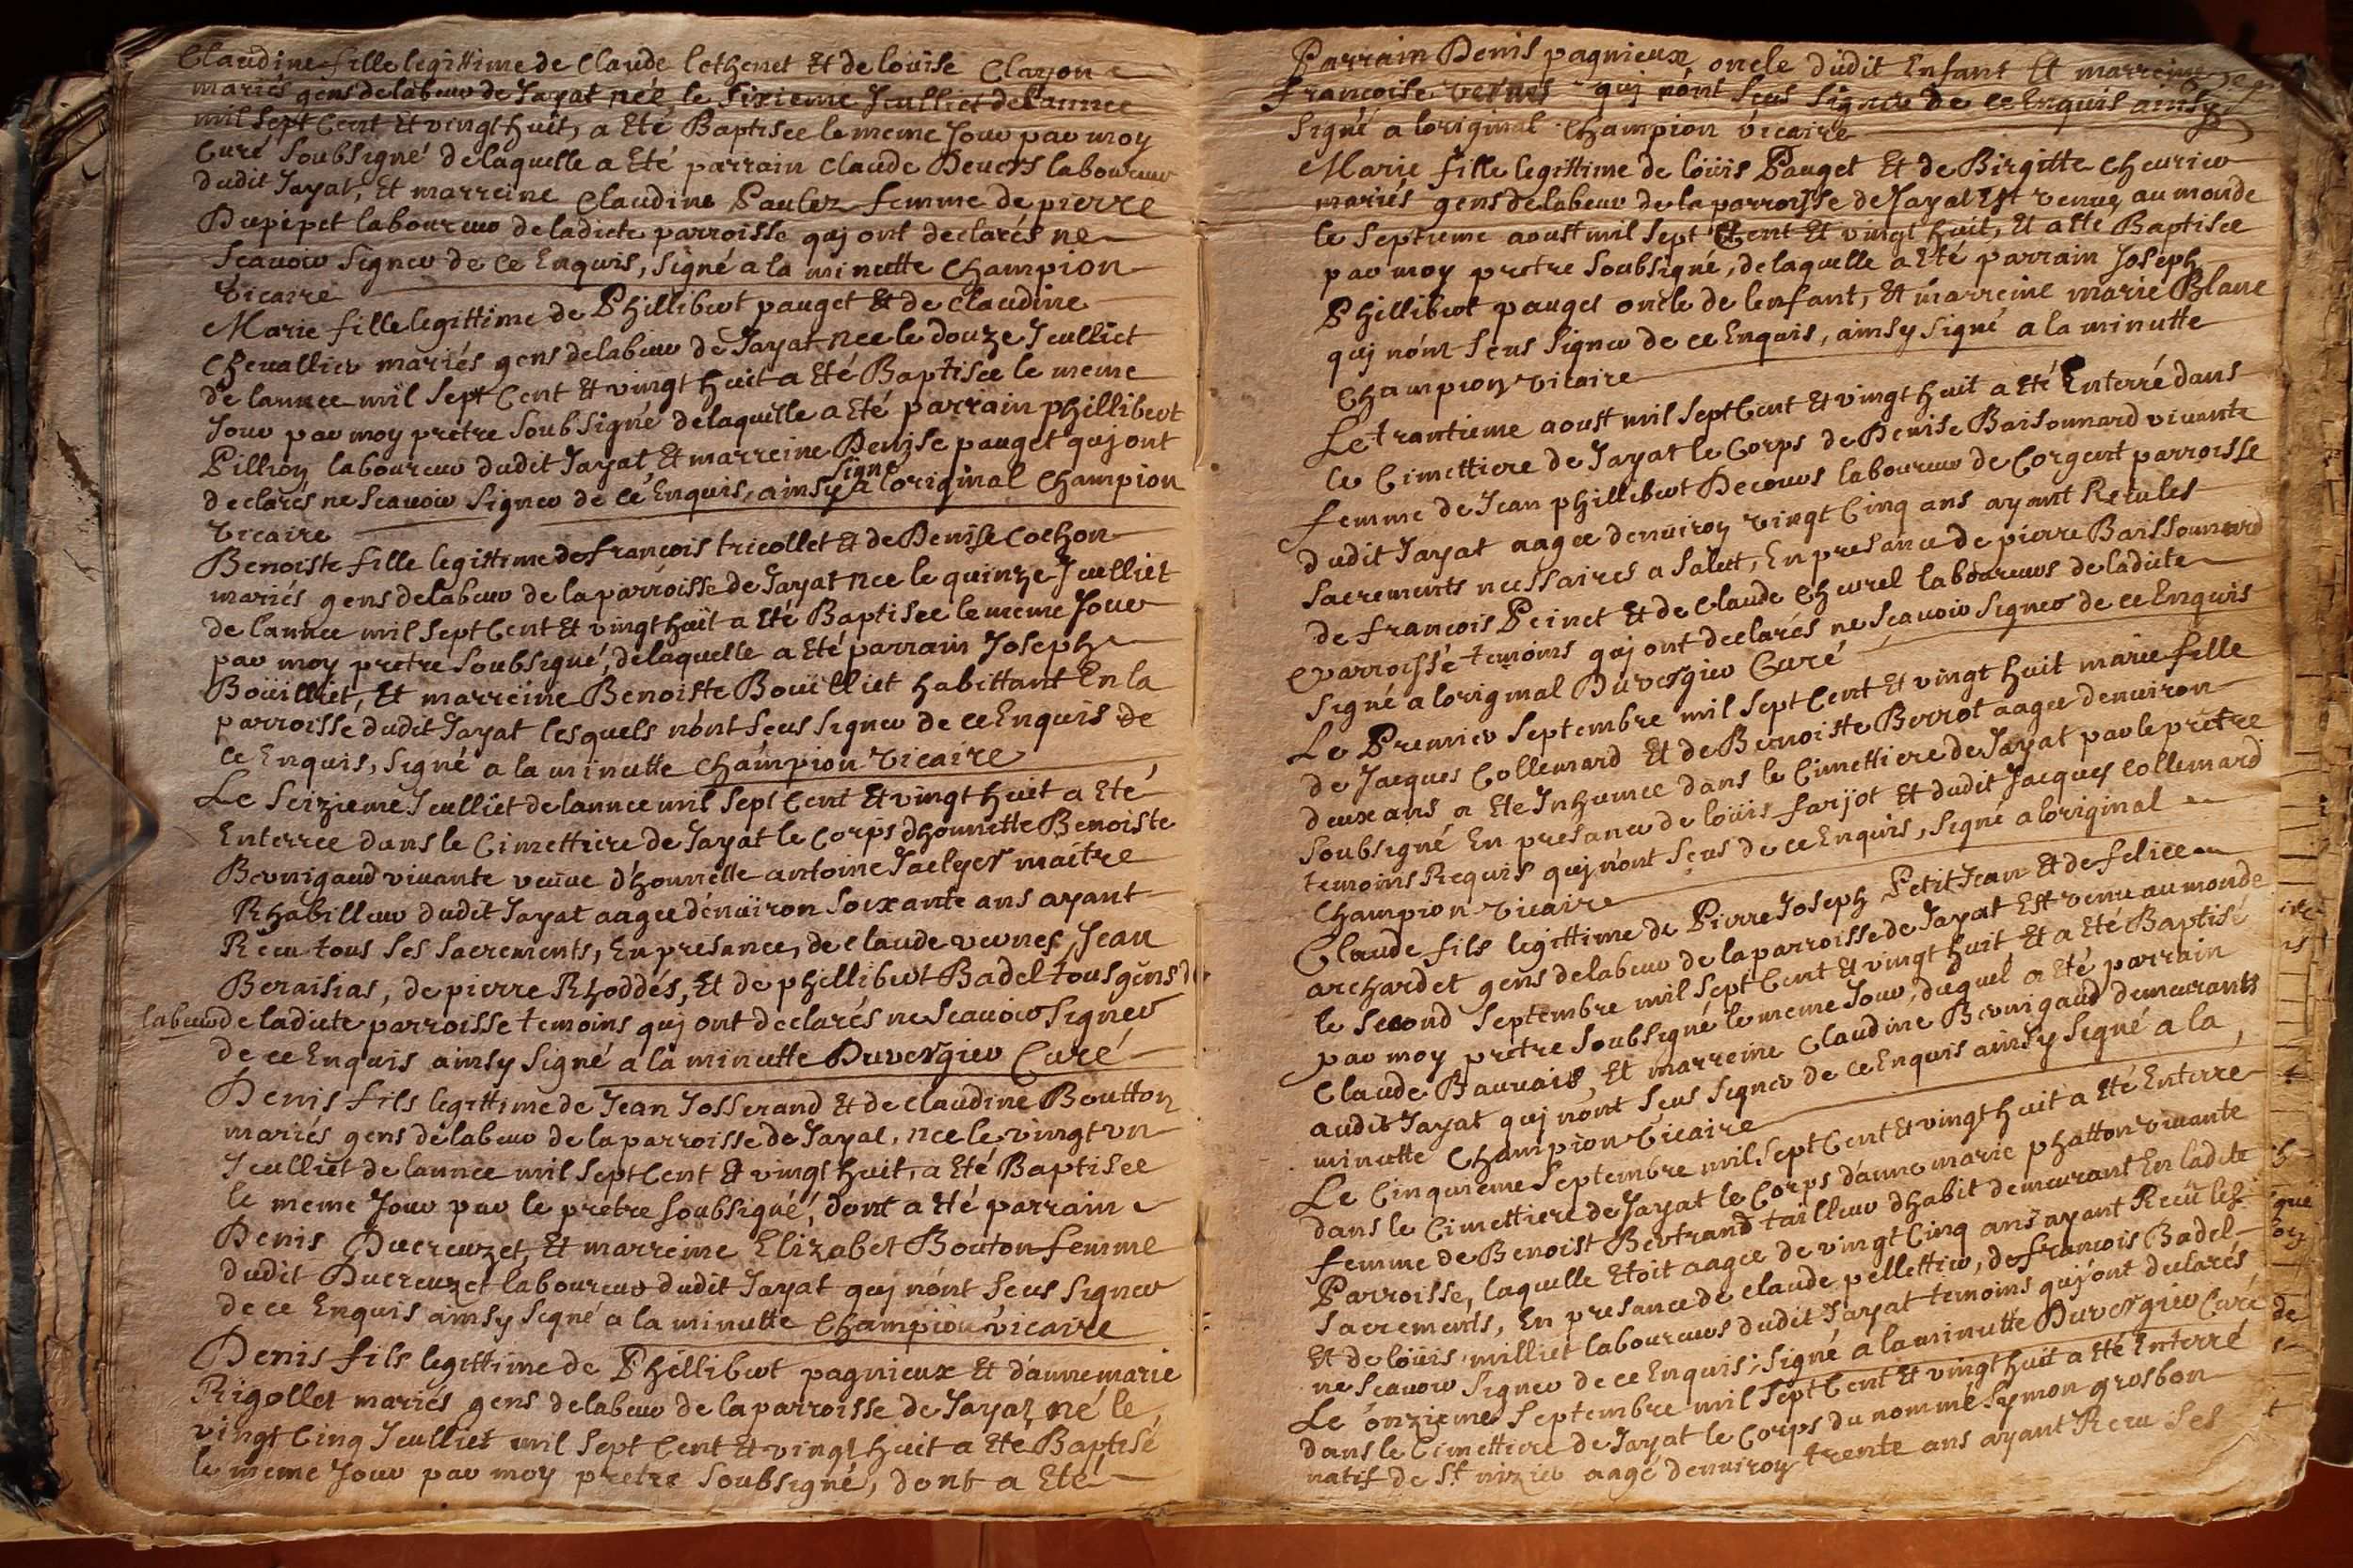 Claudine fille legittime de Claude lethenet Et de loüise Clayon
mariés gens delabeur de Jayat née le Sixieme Jeulliet de lannee
mil Sept Cent Et vingt huit, a Eté Baptisee le meme Jour par moy
Curé Soubsigné delaquelle a Eté parrain Claude Deuers laboureur
dudit Jayat, Et marreine Claudine Paulez femme de pierre
Dupipet laboureur de ladicte parroisse quj ont declarés ne
Scauoir Signer de ce Enquis, Signé a la minutte Champion
Vicaire
Marie fille legittime de Phillibert pauget Et de Claudine
Cheuallier mariés gens delabeur de Jayat née le douze Jeulliet
de lannee mil Sept Cent Et vingt huit a Eté Baptisée le meme
Jour par moy prétre Soubsigné delaquelle a Eté parrain phillibert
Pillioy laboureur dudit Jayat Et marreine Denise pauget quj ont
declarés ne Scauoir Signer de ce Enquis, ainsy Signé a loriginal Champion
Vicaire
Benoiste fille legittime de francois tricollet Et de Denise Cochon
mariés gens delabeur de la parroisse de Jayat née le quinze Jeulliet
de lannee mil Sept Cent Et vingt huit a Eté Baptisee le meme Jour
par moy pretre Soubsigné, delaquelle a Eté parrain Joseph
Boüilliet, Et marreine Benoiste Boüilliet habittant En la
parroisse dudit Jayat lesquels nónt Sçus Signer de ce Enquis de
ce Enquis, Signé a la minutte Champion Vicaire
Le Seizieme Jeulliet de lannee mil Sept Cent Et vingt huit a Eté
Enterree dans le Cimettiere de Jayat le Corps dhonnette Benoiste
Bernigaud viuante veuue d'honnette antoine Jaelyer maitre
Rhabilleur dudit Jayat aagee dénuiron Soixante ans ayant
Récu tous Ses Sacrements, En presance, de Claude vernes, Jean
Beraisias, de pierre Rhoddés, Et de phillibert Badel tous gens de
labeur de ladicte parroisse temoins quj ont declarés ne Scauoir Signer
de ce Enquis ainsy Signé a la minutte Duvergier Curé
Denis fils legittime de Jean Josserand Et de Claudine Boutton
mariés gens delabeur de la parroisse de Jayat, née le vingt vn
Jeulliet de lannee mil Sept Cent Et vingt huit, a Eté Baptisee
le meme Jour par le pretre Soubsigné, dont a Eté parrain
Denis Ducreuzet, Et marreine Elizabet Bouton femme
dudit Ducreuzet laboureur dudit Jayat quj nónt Sçus Signer
de ce Enquis ainsy Signé a la minutte Champion vicaire
Denis fils legittime de Phillibert pagnieux Et d'anne marie
Rigollet mariés gens delabeur de la parroisse de Jayat né le
vingt Cinq Jeulliet mil Sept Cent Et vingt huit a Eté Baptisé
le meme Jour par moy pretre Soubsigné, dont a Eté
Parrain Denis pagnieux oncle dudit Enfant Et marreine
francoise vernes quj nónt Sçus Signer de ce Enquis ainsy
Signé a loriginal Champion Vicaire
Marie fille legittime de loüis Pauget Et de Birgitte Cheurier
mariés gens delabeur de la parroisse de Jayat Est venue au monde
le Septieme aoust mil Sept Cent Et vingt huit, Et a Eté Baptisee
par moy pretre Soubsigné, delaquelle a Eté parrain Joseph
Phillibert pauget oncle de lenfant, Et marreine marie Blanc
quj nónt Sçus Signer de ce Enquis, ainsy Signé a la minutte
Champion Vicaire
Le trantieme aoust mil Sept Cent Et vingt huit a Eté Enterré dans
le Cimettiere de Jayat le Corps de Denise Baisonnard viuante
femme de Jean phillibert Decours laboureur de Corgent parroisse
dudit Jayat aagee denuiron vingt Cinq ans ayant Reçu les
Sacrements necessaires a Salut, En presance de pierre Baissonnard
de francois Peinet Et de Claude Cheurel laboureurs de ladicte
parroisse temoins quj ont declarés ne Scauoir Signer de ce Enquis
Signé a loriginal Duvergier Curé
Le Premier Septembre mil Sept Cent Et vingt huit marie fille
de Jacques Collemard Et de Benoistte Berrot aagee denuiron
deux ans a Eté Inhumee dans le Cimettiere de Jayat par le prétre
Soubsigné En presance de loüis farjot Et dudit Jacques Collemard
temoins Requis quj nont Sçus de ce Enquis, Signé a loriginal
Champion vicaire
Claude fils legittime de Pierre Joseph Petit Jean Et de felice
archardet gens delabeur de la parroisse de Jayat Est venu au monde
le Second Septembre mil Sept Cent Et vingt huit, Et a Eté Baptisé
par moy pretre Soubsigné le meme Jour, duquel a Eté parrain
Claude Bauuais, Et marreine Claudine Bernigaud demeurants
audit Jayat quj nont Sçus Signer de ce Enquis ainsy Signé a la
minutte Champion Vicaire
Le Cinquieme Septembre mil Sept Cent Et vingt huit a Eté Enterré
dans le Cimettiere de Jayat le Corps d'anne marie phatton viuante
femme de Benoist Bertrand tailleur dhabit demeurant En ladite
Parroisse, laquelle Etoit aagee de vingt Cinq ans ayant Recu les
Sacrements, En presance de Claude pellettier, de francois Badel
Et de loüis milliet laboureurs dudit Jayat temoins quj ont declarés
ne Scauoir Signer de ce Enquis; Signé a la minutte Duvergier Curé
Le onzieme Septembre mil Sept Cent Et vingt huit a Eté Enterré
dans le Cimettiere de Jayat le Corps du nommé Symon grosbon
natif de St nizier aagé denuiron trente ans ayant Recu Ses